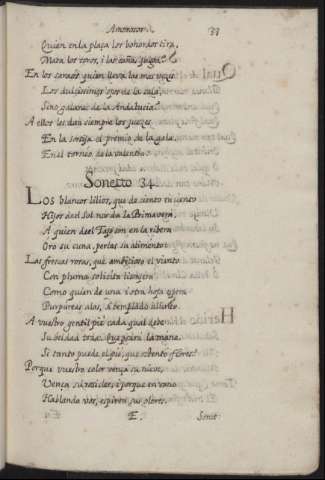 Amorosos. 33
Quien en la plaça los bohordos tira,
Mata los toros, i las cañas juega?
En los saraos quien lleva las mas vezes
Los dulcissimos ojos de la sala,
Sino galanes de la Andalucia?
A ellos les dan siempre los juezes
En la sortija el premio de la gala,
En el torneo de la valentia.
Sonetto 34.
Los blancos lilios, que de ciento en ciento
Hijos de el Sol nos da la Primavera,
A quien de el Tajo son en la ribera
Oro su cuna, perlas su alimento:
Las frescas rosas, que ambicioso el viento
Con pluma solicita lisonjera
Como quien de una i otra hoja espera
Purpureas alas, si templado aliento:
A vuestro gentil pie cada qual debe
Su beldad toda: que harà la mano,
Si tanto puede el pie, que ostenta flores?
Porque vuestro color vença su nieve,
Vença su rosicler, i porque en vano
Hablando vos, espiren sus olores.
E. Sonet